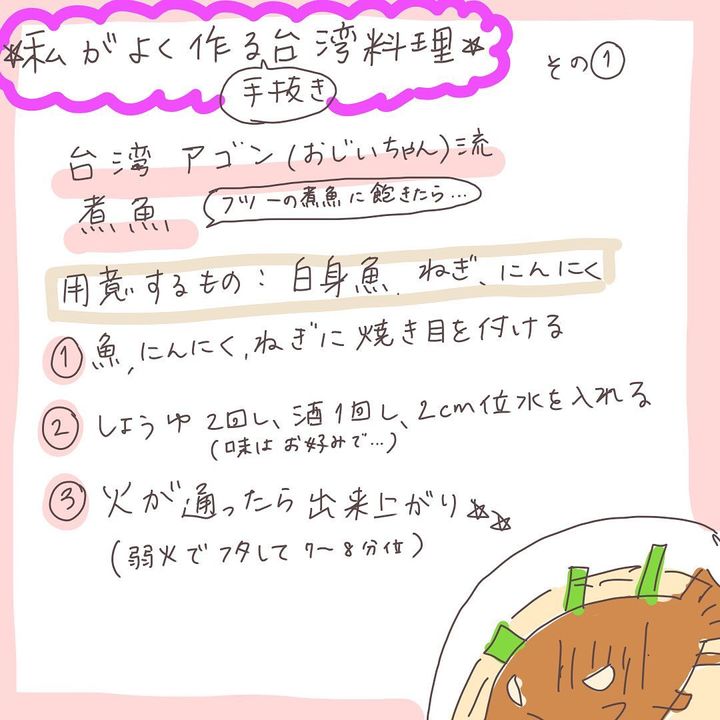 ☆私がよく作る台湾料理☆
手抜き
その①
台湾 アゴン(おじいちゃん)流
煮魚
フツーの煮魚に飽きたら…
用意するもの: 白身魚、ねぎ、にんにく
① 魚,にんにく,ねぎに焼き目を付ける
② しょうゆ 2回し、酒1回し、2cm位水を入れる
(味はお好みで…)
③ 火が通ったら出来上がり☆☆
(弱火でフタして 7〜8分位)